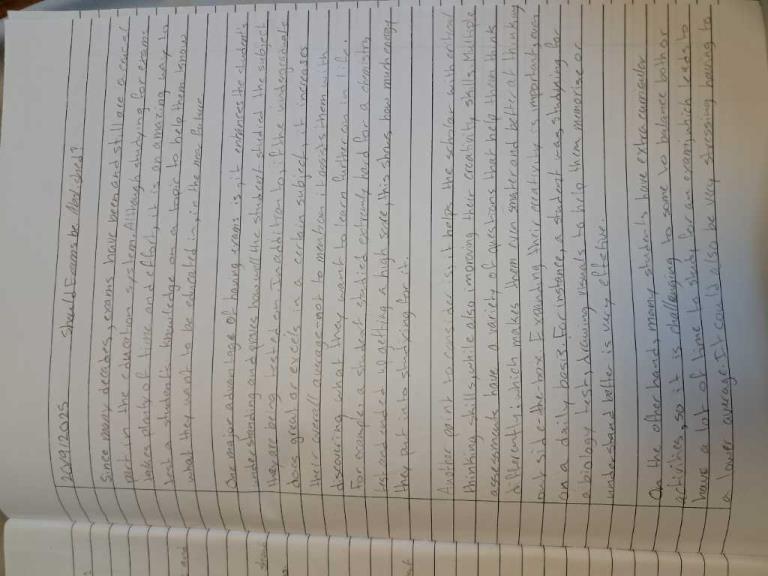 20/9/2025 Should Exams be Abolished?
Since many decades, exams have been and still are a crucial
part in the education system. Although studying for exams
takes plenty of time and effort, it is an amazing way to
test a students knowledge on a topic to help them know
what they want to be educated in, in the near future.
One major advantage of having exams is, it enhances the student's
understanding and proves how well the student studied the subject
they are being tested on. In addition to, if the undergraduate
does great or excels in a certain subject, it increases
their overall average - not to mention, it assists them with
discovering what they want to learn further on in life.
For example: a student studied extremely hard for a chemistry
test and ended up getting a high score, this shows how much energy
they put into studying for it.
Another point to consider is, it helps the scholar with critical
thinking skills, while also improving their creativity skills. Multiple
assessments have a variety of questions that help them think
differently; which makes them even smarter and better at thinking
outside-the-box. Expanding their creativity is important, even
on a daily basis. For instance, a student was studying for
a biology test, drawing visuals to help them memorise or
understand better is very effective.
On the other hand, many students have extra curricular
activities, so it is challenging to some to balance both or
have a lot of time to study for an exam, which leads to
a lower average. It could also be very stressing having to